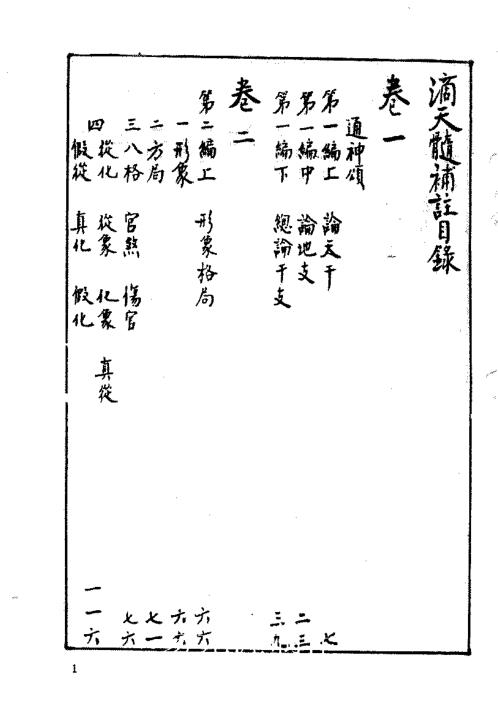 滴天髓補註目錄
卷一
通神頌
第一編上 論天干 七
第一編中 論地支 二三
第一編下 總論干支 三九
卷二
第二編上 形象格局 六六
一形象 六六
二方局 七一
三八格 官煞 傷官 七六
四從化 從象 化象 真從 一一六
假從 真化 假化
1